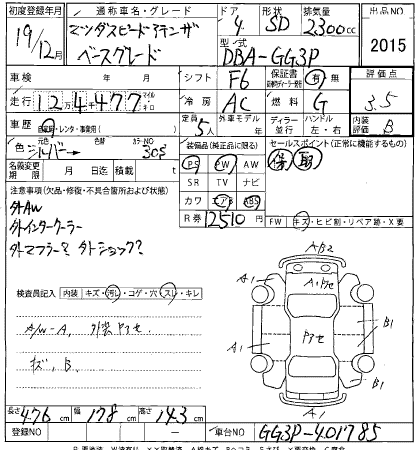 初度登録年月 通称車名・グレード ドア 形状 排気量 出品NO
19/12月 マツダスピードアテンザ 4 SD 2300cc
ベースグレード 型式 DBA-GG3P 2015
車検 年 月 シフト F6 保証書 有 無 評価点
走行 12万4千477 マイル キロ 冷房 AC 燃料 G 3.5
車歴 自家用・レンタ・事業用( ) 定員 5人 外車モデル 年 ディーラー 並行 ハンドル 左・右 内装 B
色 シルバー 色替 カラーNO 30S 装備品(純正品に限る) セールスポイント(正常に機能するもの)
PS PW AW 保 取
名義変更期限 月 日迄 積載 t SR TV ナビ
注意事項(欠品・修復・不具合箇所および状態) カワ エアB ABS
外AW R券 12510円 FW キズ・ヒビ割・リペア跡・X要
外インタークーラー
外マフラー? 外ショック?
AB2
A1
検査員記入 内装 キズ・汚レ・コゲ・穴・スレ・キレ
A/W-A、外装ヤケ
キズ、B、
A1
B1
A1
B1
A1
長さ 476cm 幅 178cm 高さ 143cm
登録NO ー 車台NO GG3P-401785